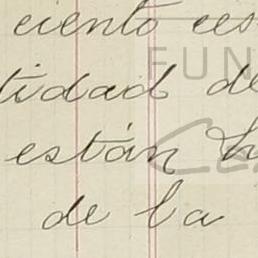 ciento ces
tidad de
están h
de la
FUN